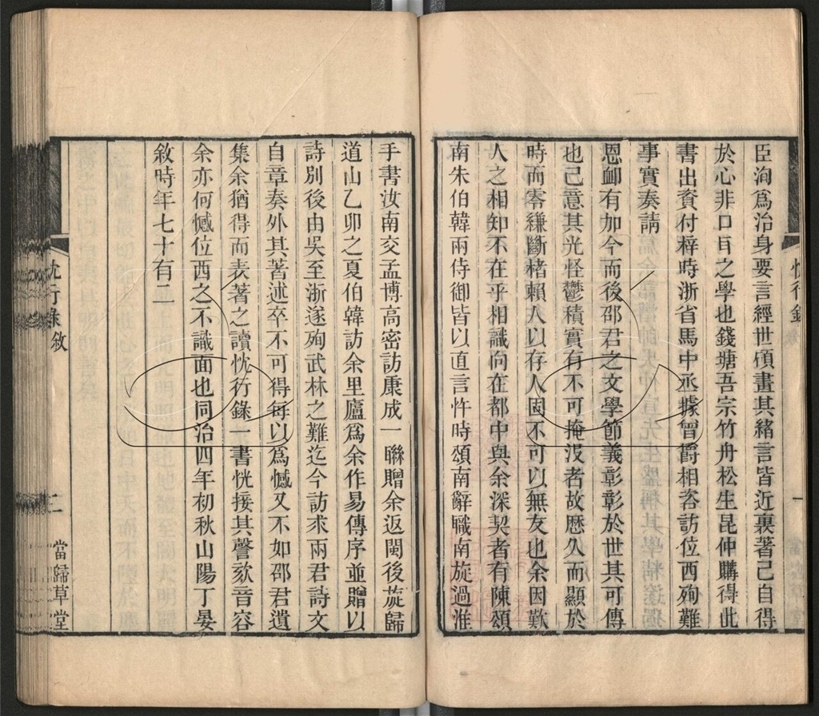 臣洵爲治身要言經世碩畫其緒言皆近裏著己自得
於心非口耳之學也錢塘吾宗竹舟松生昆仲購得此
書出資付梓時浙省馬中丞據曾爵相咨訪位西殉難
事實奏請
恩卹有加今而後邵君之文學節義彰彰於世其可傳
也已意其光怪鬱積實有不可掩沒者故歷久而顯於
時而零縑斷楮賴人以存人固不可以無友也余因歎
人之相知不在乎相識向在都中與余深契者有陳頌
南朱伯韓兩侍御皆以直言忤時頌南辭職南旋過淮
手書汝南交孟博高密訪康成一聯贈余返閩後旋歸
道山乙卯之夏伯韓訪余里廬爲余作易傳序並贈以
詩別後由吳至浙遂殉武林之難迄今訪求兩君詩文
自章奏外其著述卒不可得每以爲憾又不如邵君遺
集余猶得而表著之讀忱行錄一書恍接其聲欬音容
余亦何憾位西之不識面也同治四年初秋山陽丁晏
敘時年七十有二
忱行錄敘
二
當歸草堂
忱行錄
一